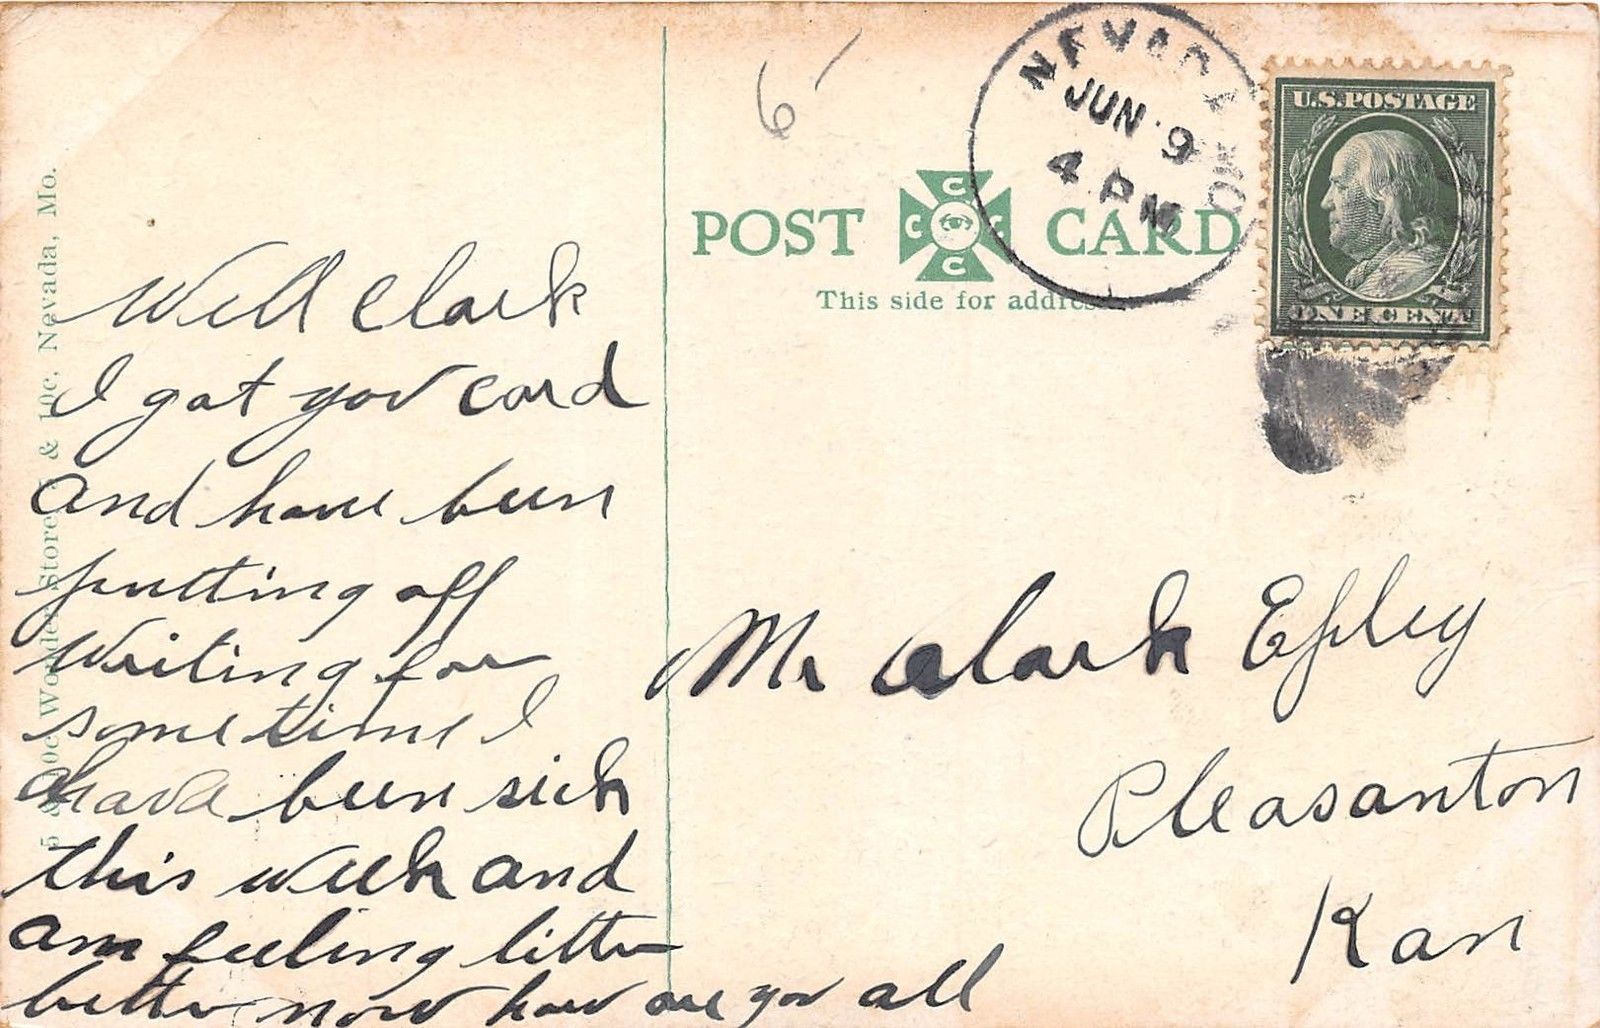 Well Clark
I got you card
and have been
putting off
writing for
some time I
have been sick
this week and
am feeling litter
better now how are you all
6
POST CARD
C C C C
This side for address
NEVADA MO
JUN 9
4 PM
U.S. POSTAGE
ONE CENT
Mr Clark Epley
Pleasanton
Kan
& 10c. Wonder Store, 5 & 10c. Nevada, Mo.